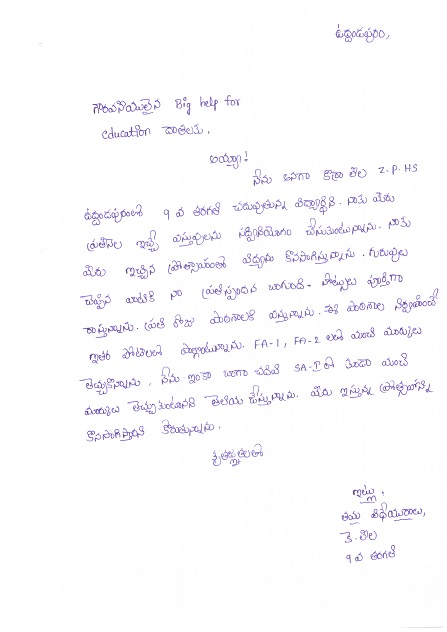 ఉద్దండపురం,
గౌరవనీయులైన Big help for
education దాతలకు,
అయ్యా!
నేను అనగా కొణా తల Z.P.HS
ఉద్దండపురంలో 9 వ తరగతి చదువుతున్న విద్యార్థిని. నాకు మీరు
ప్రతినెల ఇచ్చే వస్తువులను సద్వినియోగం చేసుకుంటున్నాను. నాకు
మీరు ఇచ్చిన ప్రోత్సాహంతో విద్యను కొనసాగిస్తున్నాను. గురువులు
చెప్పిన వాటికి నా ప్రతిస్పందన బాగుంది. నోట్సులు పూర్తిగా
రాస్తున్నాను. ప్రతి రోజు పాఠశాలకి వస్తున్నాను. మా పాఠశాల నిర్వహించే
ఇతర పోటీలలో పాల్గొంటున్నాను. FA-1, FA-2 లలో మంచి మార్కులు
తెచ్చుకొన్నాను. నేను ఇంకా బాగా చదివి SA-I లో కూడా మంచి
మార్కులు తెచ్చుకుంటానని తెలియ చేస్తున్నాను. మీరు ఇస్తున్న ప్రోత్సాహాన్ని
కొనసాగిస్తారని కోరుతున్నాను.
కృతజ్ఞతలతో
ఇట్లు,
తమ విధేయురాలు,
కె. తల
9 వ తరగతి